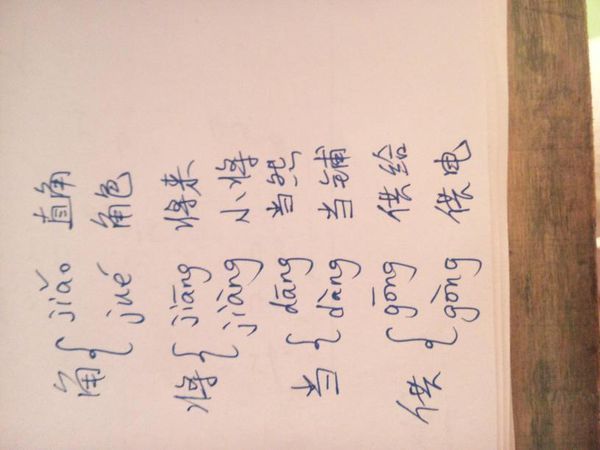 角{ jiǎo 直角
jué 角色
将{ jiāng 将来
jiàng 小将
当{ dāng 当然
dàng 当铺
供{ gōng 供给
gòng 供电